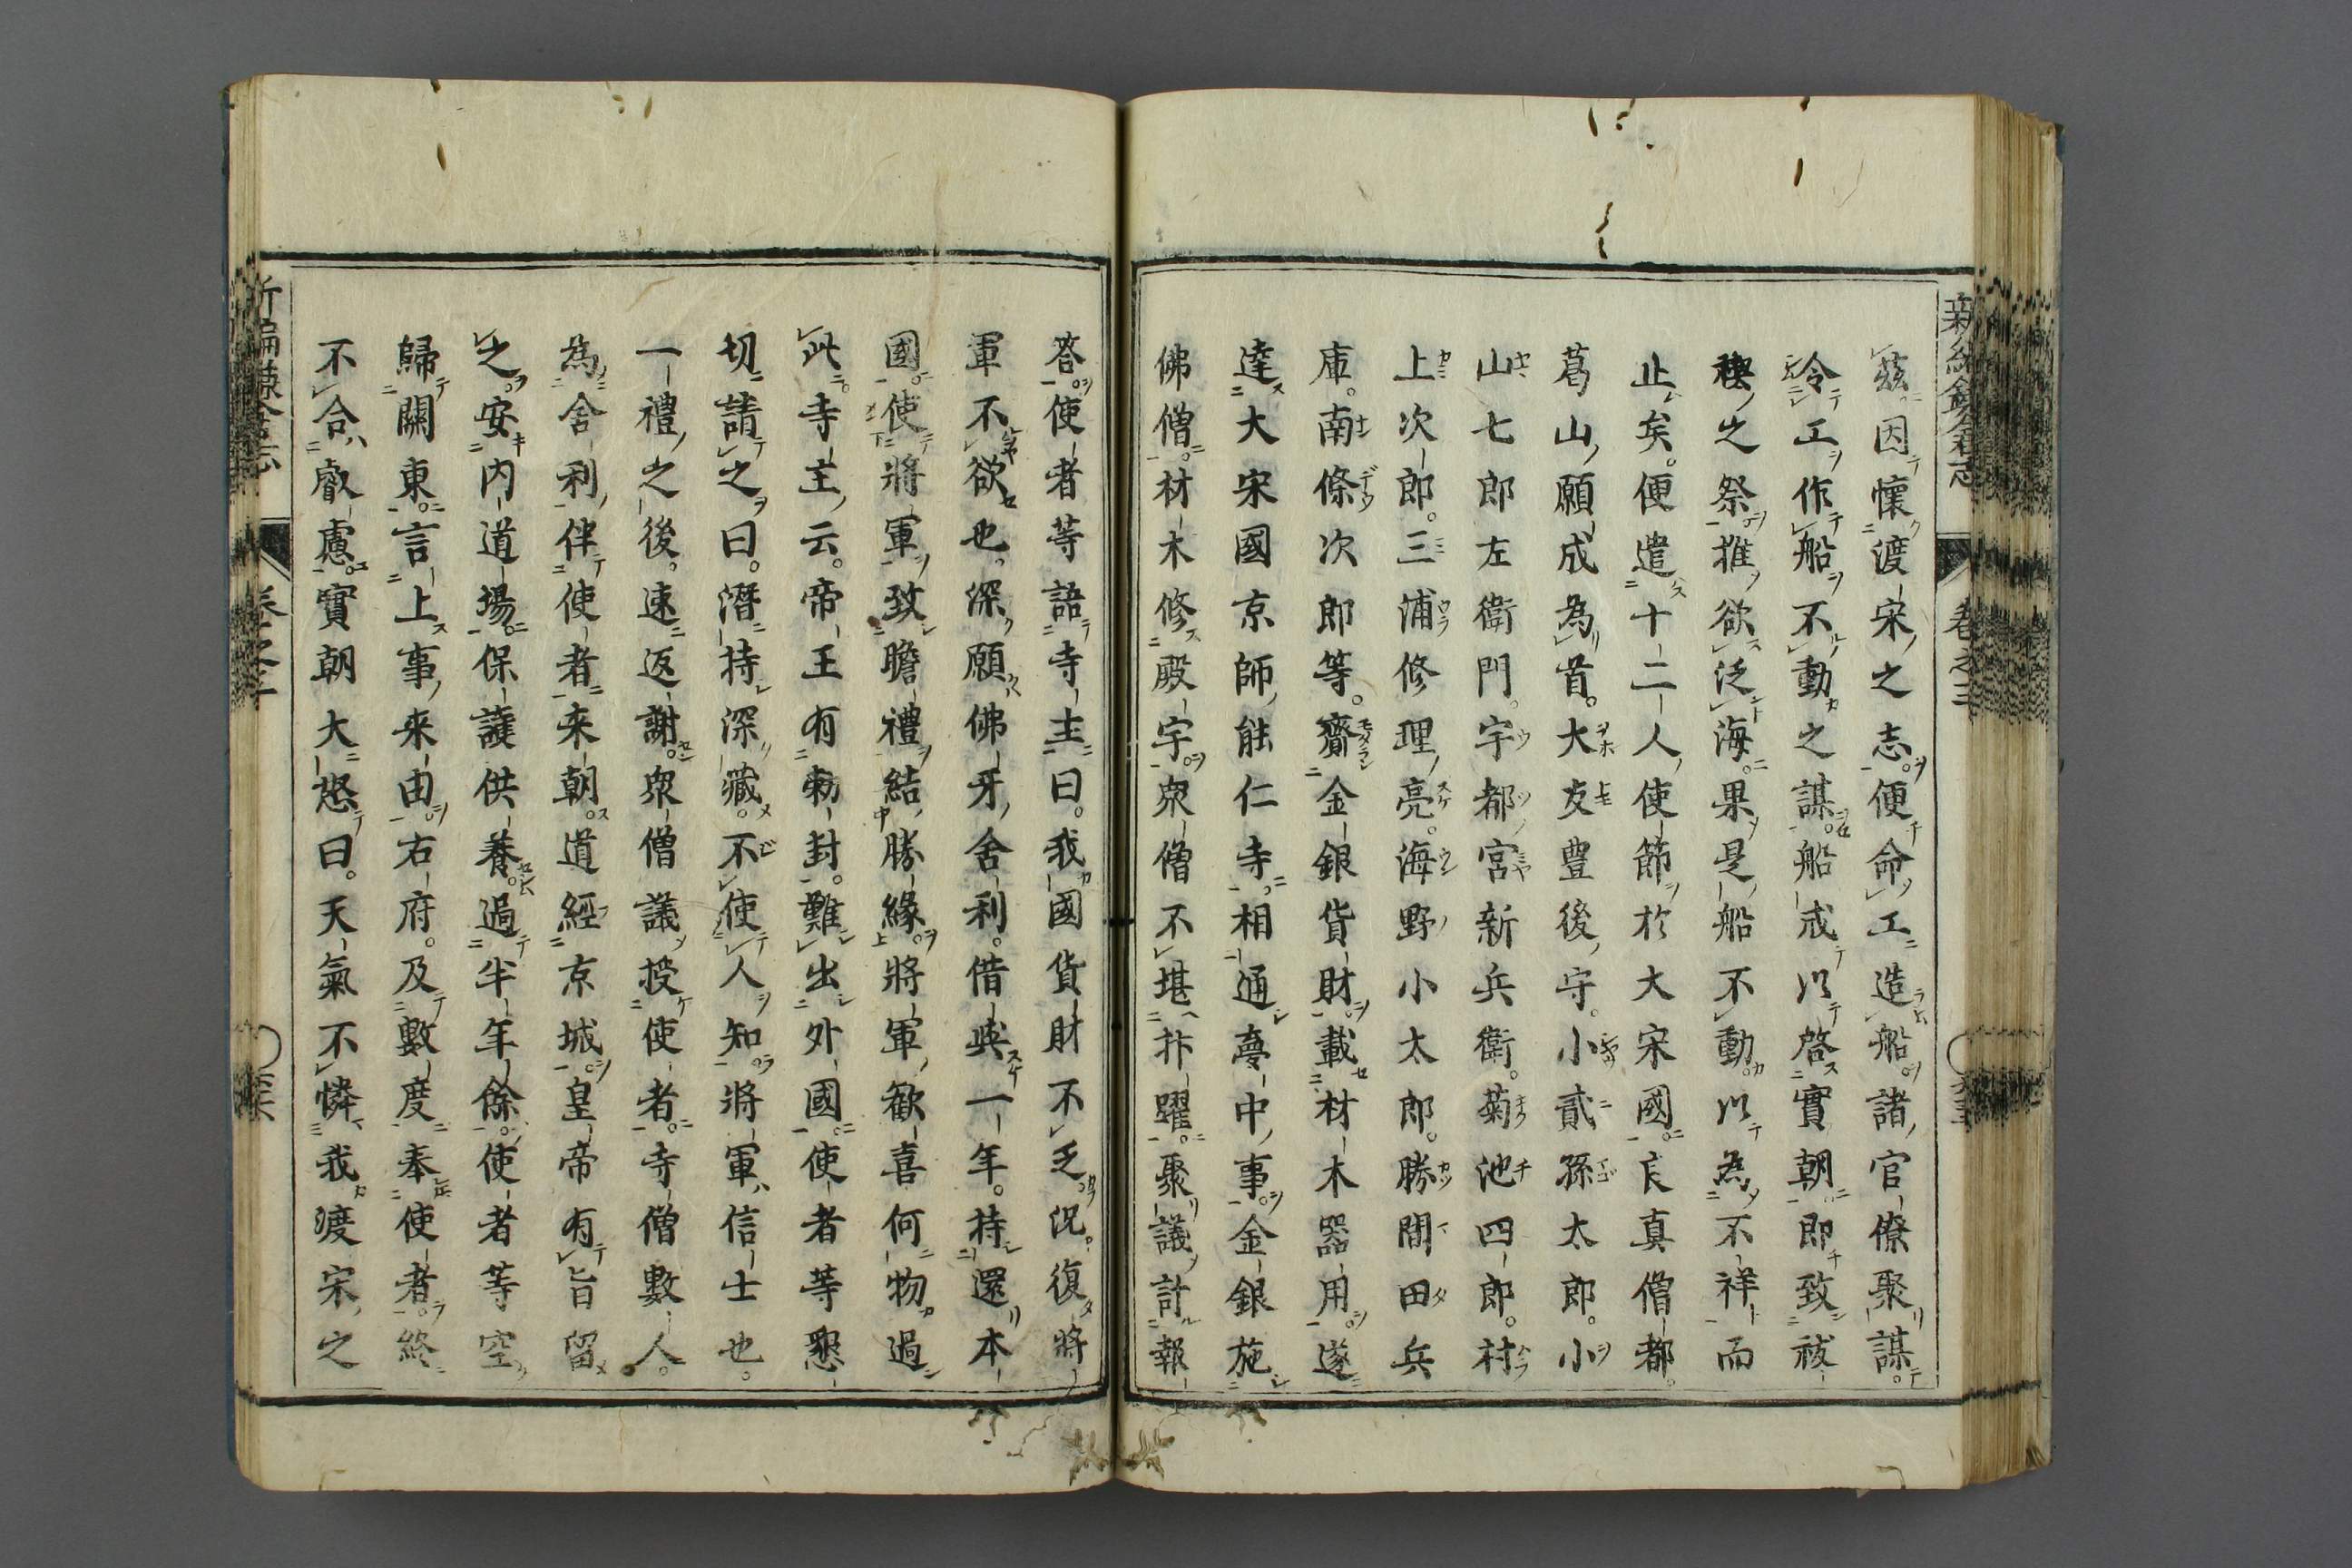 茲因懷渡宋之志。便命工造船。諸官僚聚謀。
令工作船不動之謀。船戒以啓實朝。即致祓
禊之祭。推欲泛海。果是船不動。以為不祥而
止矣。便遣十二人使節於大宋國。良真僧都。
葛山願成為首。大友豊後守。小貳孫太郎。小
山七郎左衛門。宇都宮新兵衛。菊池四郎。村
上次郎。三浦修理亮。海野小太郎。勝間田兵
庫。南條次郎等。齎金銀貨財。載材木器用。遂
達大宋國京師能仁寺。相通夢中事。金銀施
佛僧。材木修殿宇。衆僧不堪抃躍。聚議計報
答。使者等語寺主曰。我國貨財不乏。況復將
軍不欲也。深願佛牙舍利。借與一年。持還本
國。使將軍致瞻禮結勝緣。將軍歡喜何物過
此。寺主云。帝王有勅封。難出外國。使者等懇
切請之曰。潛持深藏。不使人知。將軍信士也。
一禮之後。速返謝。衆僧議授使者。寺僧數人。
為舍利伴使者來朝。道經京城。皇帝有旨留
之。安内道場。保護供養。過半年餘。使者等空
歸關東。言上事來由。右府。及數度奉使者。終
不合叡慮。實朝大怒曰。天氣不憐我渡宋之
新編鎌倉志
卷之三